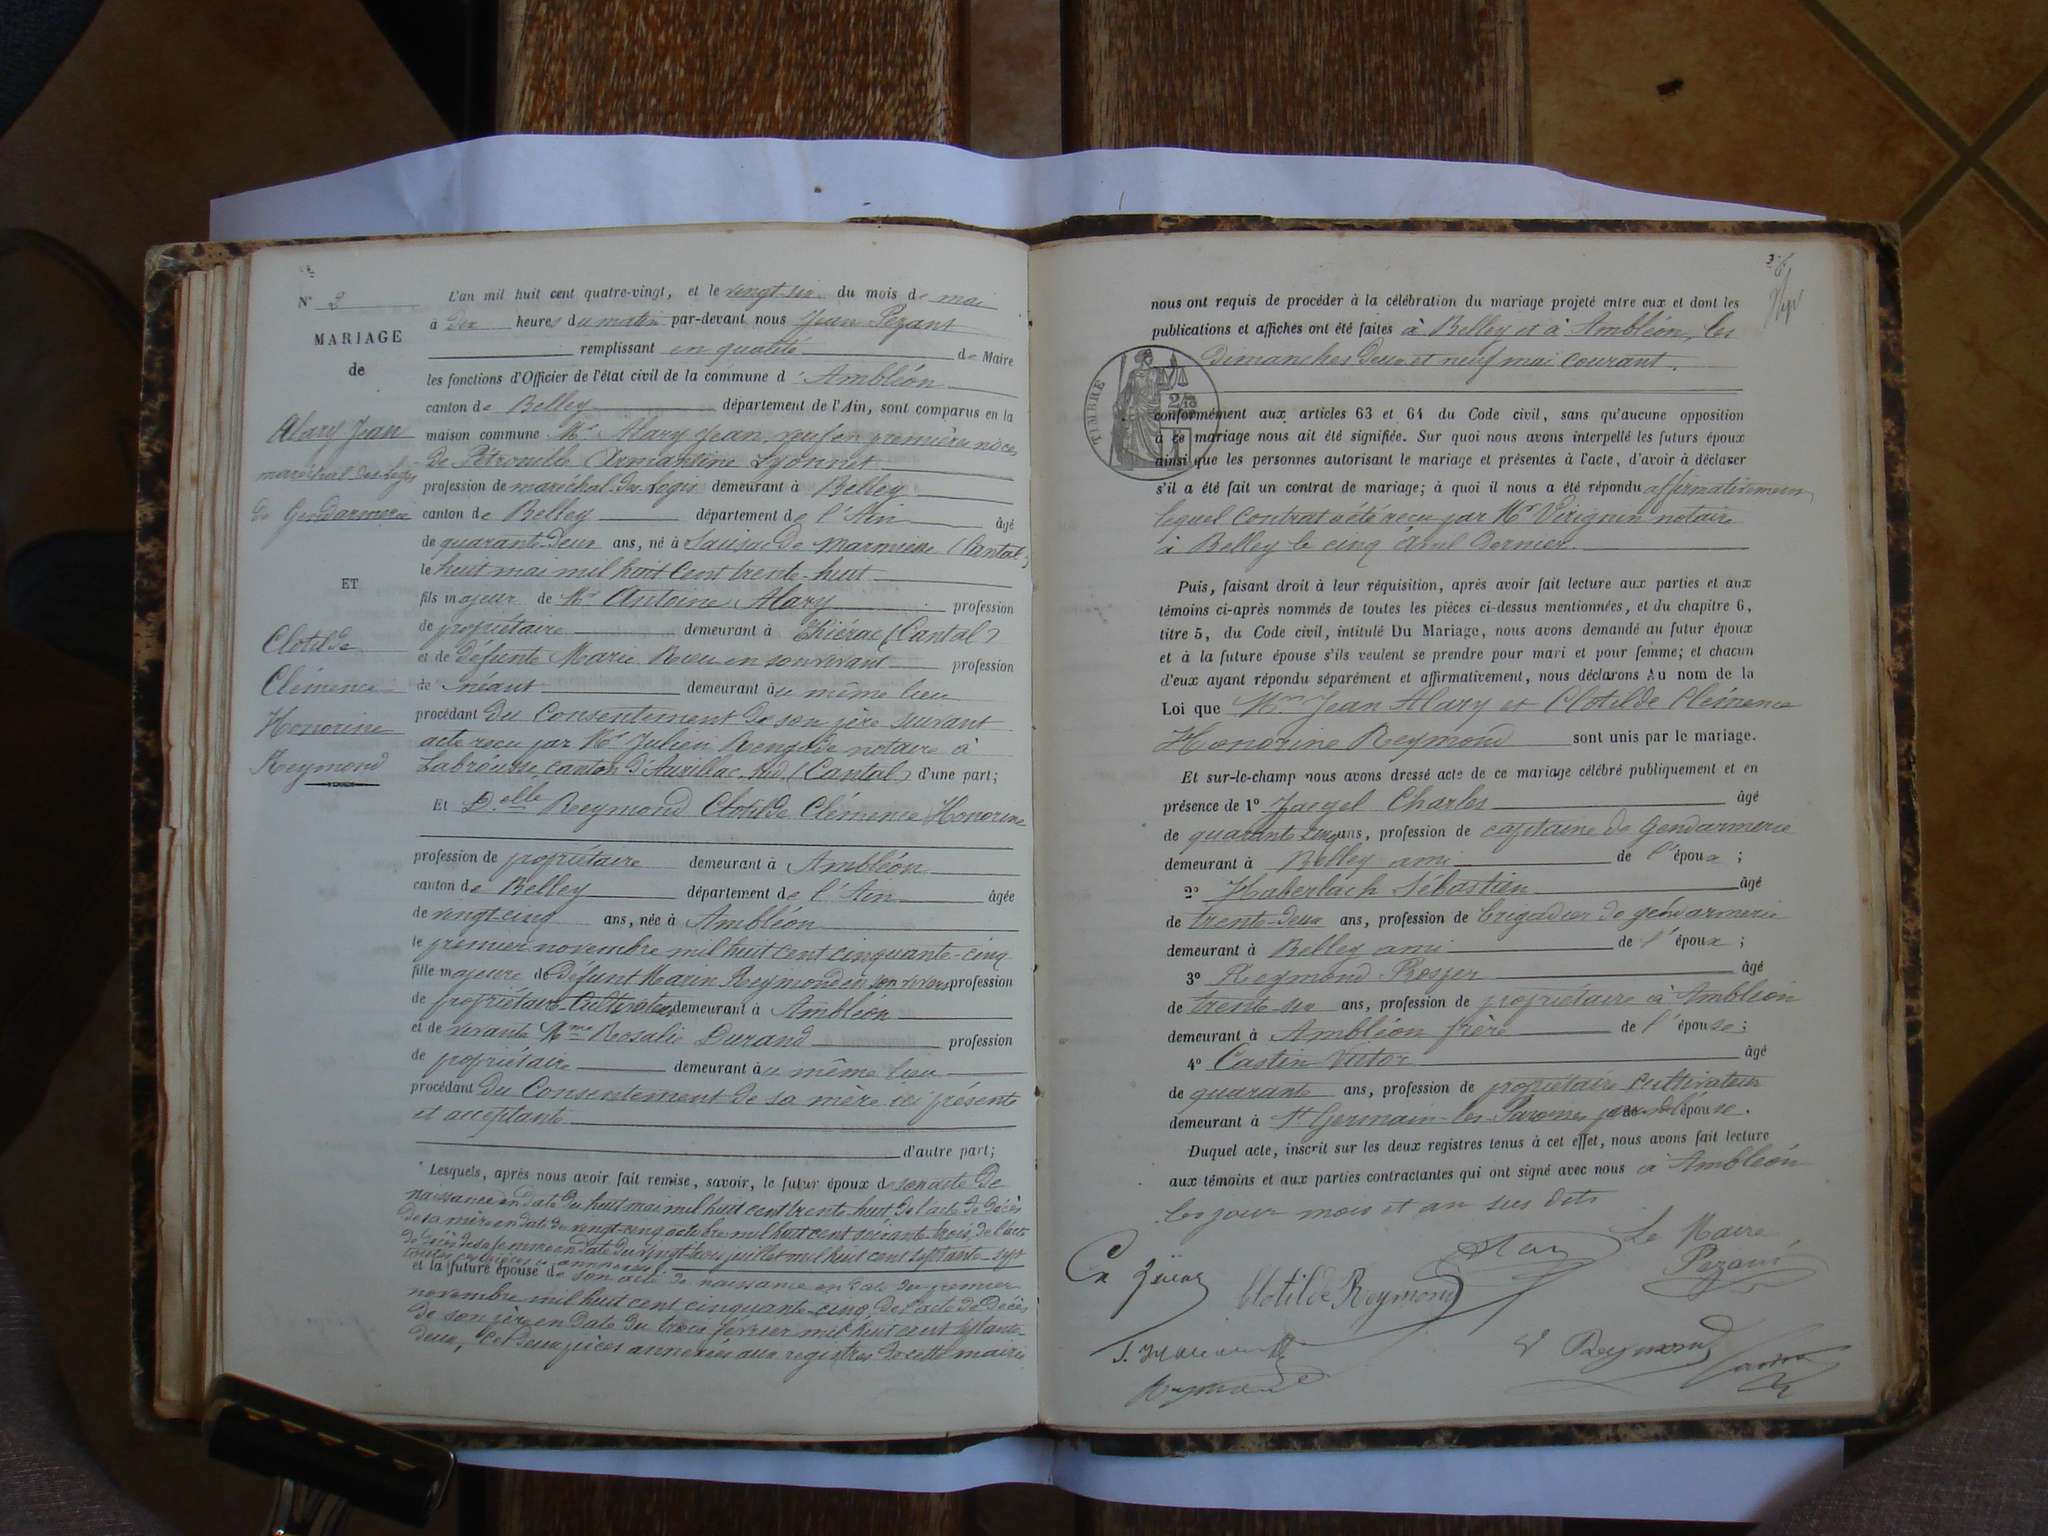 N° 2
MARIAGE
de
Alary Jean
maréchal des logis
de Gendarmerie
ET
Clotilde
Clémence
Honorine
Reymond
L'an mil huit cent quatre-vingt, et le vingt-six du mois de mai
à dix heures du matin par-devant nous Jean Pezant
remplissant en qualité de Maire
les fonctions d'Officier de l'état civil de la commune d'Ambléon
canton de Belley département de l'Ain, sont comparus en la
maison commune Mr Alary Jean, veuf en première noces
de Pétronille Armantine Lyonnet
profession de maréchal des logis demeurant à Belley
canton de Belley département de l'Ain âgé
de quarante-deux ans, né à Sansac de Marmiesse (Cantal)
le huit mai mil huit cent trente-huit
fils majeur de Mr Antoine Alary profession
de propriétaire demeurant à (Cantal)
et de defunte Marie en son vivant profession
de néant demeurant au même lieu
procédant du Consentement de son père suivant
acte reçu par Mr Julien notaire à
Labrousse canton d'Aurillac Sud (Cantal) d'une part;
Et Delle Reymond Clotilde Clémence Honorine
profession de propriétaire demeurant à Ambléon
canton de Belley département de l'Ain âgée
de vingt-cinq ans, née à Ambléon
le premier novembre mil huit cent cinquante-cinq
fille majeure de defunt Marin Reymond en son vivant profession
de propriétaire-Cultivateur demeurant à Ambléon
et de vivante Mme Rosalie Durand profession
de propriétaire demeurant au même lieu
procédant du Consentement de sa mère ici présente
et acceptante
d'autre part;
Lesquels, après nous avoir fait remise, savoir, le futur époux de son acte de
naissance en date du huit mai mil huit cent trente-huit de l'acte de décès
de sa mère en date du vingt-cinq octobre mil huit cent soixante-trois, de l'acte
de décès de sa femme en date du vingt-trois juillet mil huit cent septante-sept
toutes ces pièces annexées
et la future épouse de son acte de naissance en date du premier
novembre mil huit cent cinquante-cinq, de l'acte de décès
de son père en date du trois février mil huit cent septante-
deux, Ces deux pièces annexées aux registres de cette mairie
nous ont requis de procéder à la célébration du mariage projeté entre eux et dont les
publications et affiches ont été faites à Belley et à Ambléon, les
dimanches deux et neuf mai courant.
TIMBRE
conformément aux articles 63 et 64 du Code civil, sans qu'aucune opposition
à ce mariage nous ait été signifiée. Sur quoi nous avons interpellé les futurs époux
ainsi que les personnes autorisant le mariage et présentes à l'acte, d'avoir à déclarer
s'il a été fait un contrat de mariage; à quoi il nous a été répondu affirmativement
lequel Contrat a été reçu par Mr Virignin notaire
à Belley le cinq avril dernier.
Puis, faisant droit à leur réquisition, après avoir fait lecture aux parties et aux
témoins ci-après nommés de toutes les pièces ci-dessus mentionnées, et du chapitre 6,
titre 5, du Code civil, intitulé Du Mariage, nous avons demandé au futur époux
et à la future épouse s'ils veulent se prendre pour mari et pour femme; et chacun
d'eux ayant répondu séparément et affirmativement, nous déclarons Au nom de la
Loi que Jean Alary et Clotilde Clémence
Honorine Reymond sont unis par le mariage.
Et sur-le-champ nous avons dressé acte de ce mariage célébré publiquement et en
présence de 1° Jaegel Charles âgé
de ans, profession de capitaine de Gendarmerie
demeurant à Belley ami de l'époux;
2° Haberlach Sébastien âgé
de trente-deux ans, profession de brigadier de gendarmerie
demeurant à Belley ami de l'époux;
3° Reymond Prosper âgé
de trente-six ans, profession de propriétaire à Ambléon
demeurant à Ambléon frère de l'épouse;
4° Castin Victor âgé
de quarante ans, profession de propriétaire cultivateur
demeurant à St Germain-les-Paroisses de l'épouse.
Duquel acte, inscrit sur les deux registres tenus à cet effet, nous avons fait lecture
aux témoins et aux parties contractantes qui ont signé avec nous à Ambléon
les jour mois et an sus dits
Le Maire
Pezant
Alary
Clotilde Reymond
Reymond